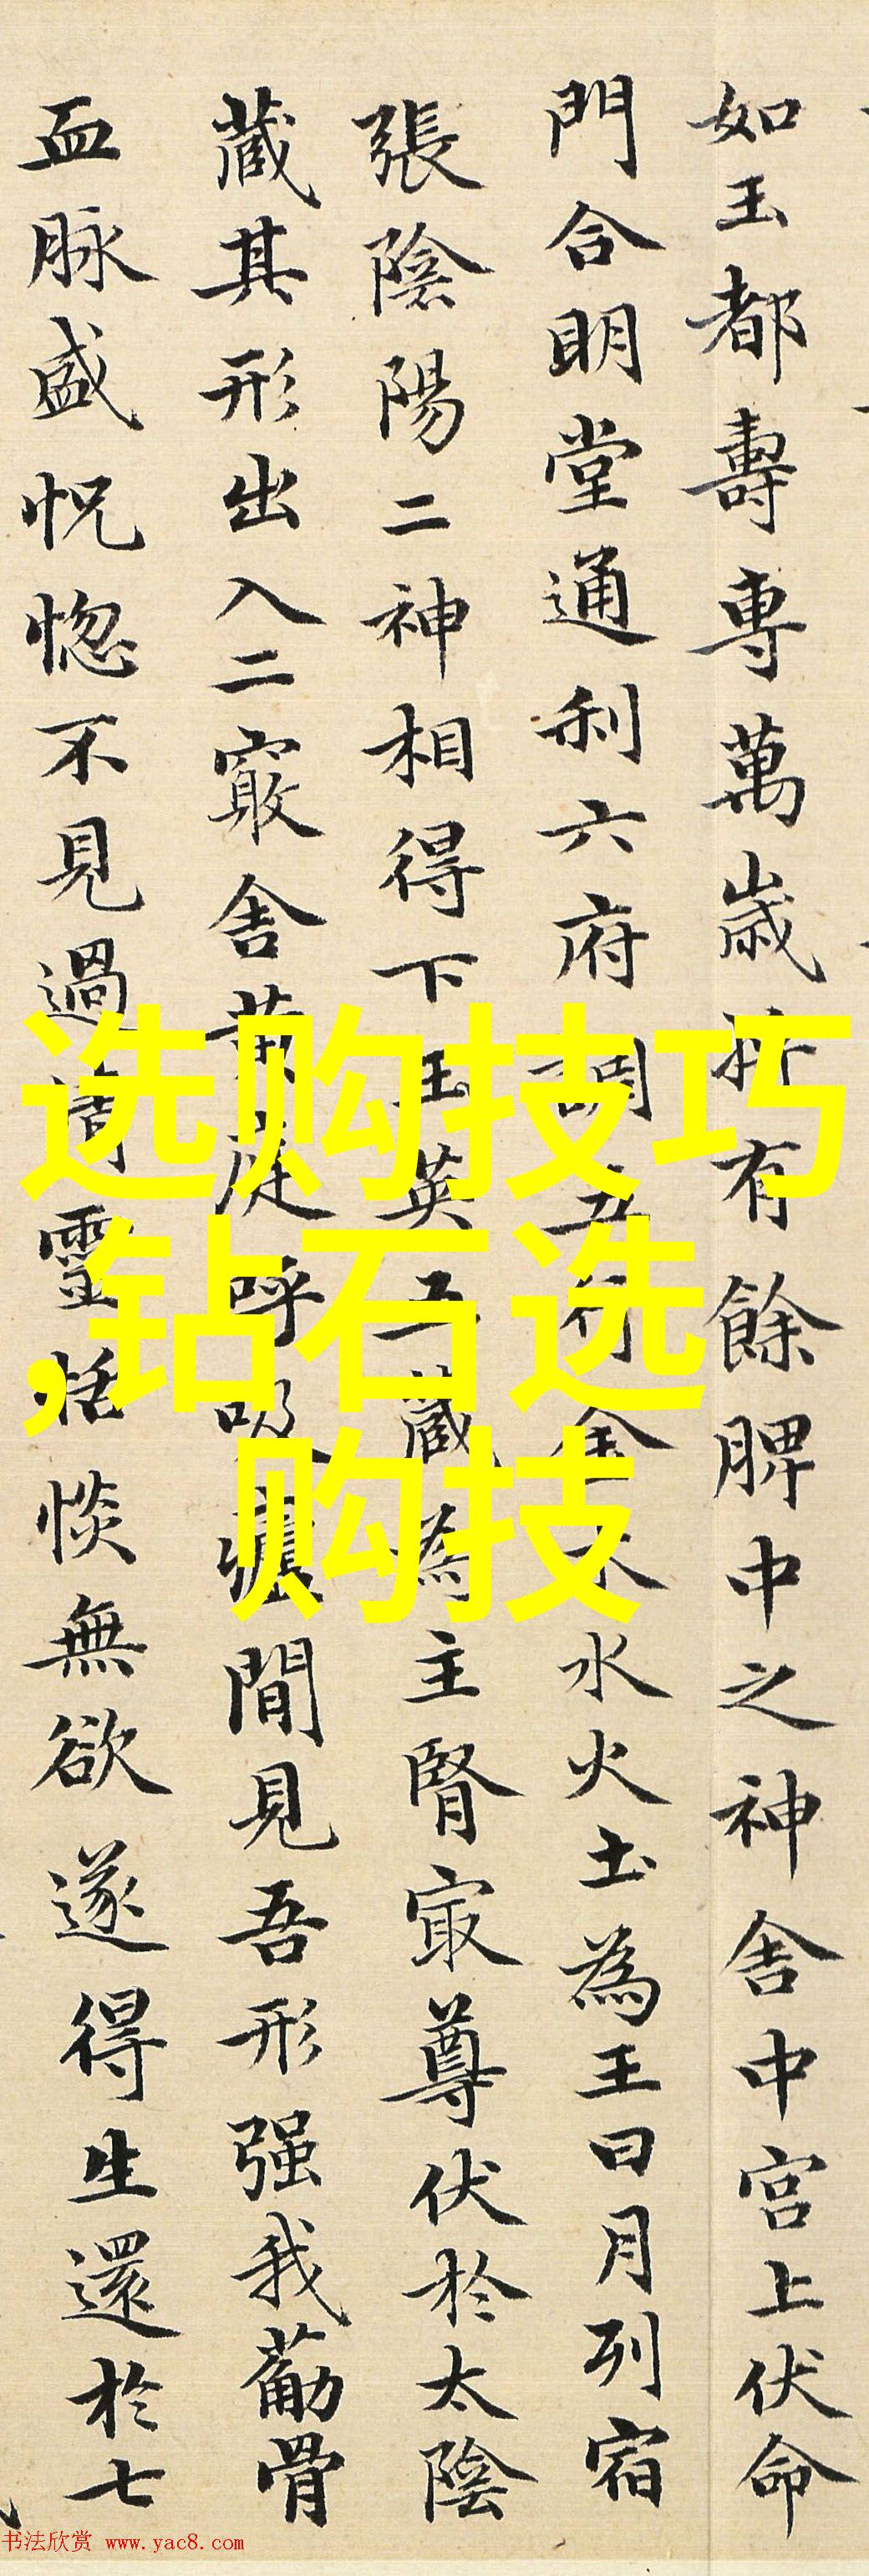 如玉都壽專萬歲將有餘脾中之神舍中宮上伏命
門合明堂通利六府調五行金木水火土為王日月列宿
張陰陽二神相得下玉英五藏為主腎㝡尊伏於太陰
藏其形出入二竅舍黃庭呼吸虛間見吾形强我葋骨
血脉盛怳惚不見過清靈恬惔無欲遂得生還於七
选购技巧
,钻石选
购技
书法欣赏 www.yac8.com